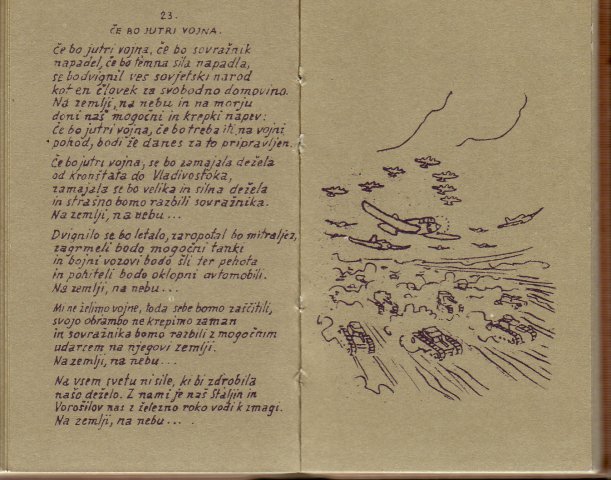 23.
ČE BO JUTRI VOJNA.
Če bo jutri vojna, če bo sovražnik
napadel, če bo temna sila napadla,
se bo dvignil ves sovjetski narod
kot en človek za svobodno domovino.
Na zemlji, na nebu in na morju
doni naš mogočni in krepki napev:
Če bo jutri vojna, če bo treba iti na vojni
pohod, bodi že danes za to pripravljen.
Če bo jutri vojna, se bo zamajala dežela
od Kronštata do Vladivostoka,
zamajala se bo velika in silna dežela
in strašno bomo razbili sovražnika.
Na zemlji, na nebu...
Dvignilo se bo letalo, zaropotal bo mitraljez,
zagrmeli bodo mogočni tanki
in bojni vozovi bodo šli ter pehota
in pohiteli bodo oklopni avtomobili.
Na zemlji, na nebu...
Mi ne želimo vojne, toda sebe bomo zaščitili,
svojo obrambo ne krepimo zaman
in sovražnika bomo razbili z mogočnim
udarcem na njegovi zemlji.
Na zemlji, na nebu...
Na vsem svetu ni sile, ki bi zdrobila
našo deželo. Z nami je naš Staljin in
Vorošilov nas z železno roko vodi k zmagi.
Na zemlji, na nebu...